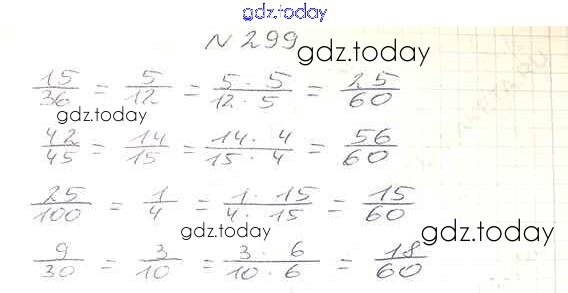 gdz.today
№ 299
gdz.today
15/36 = 5/12 = 5 · 5/12 · 5 = 25/60
gdz.today
42/45 = 14/15 = 14 · 4/15 · 4 = 56/60
25/100 = 1/4 = 1 · 15/4 · 15 = 15/60
gdz.today
gdz.today
9/30 = 3/10 = 3 · 6/10 · 6 = 18/60